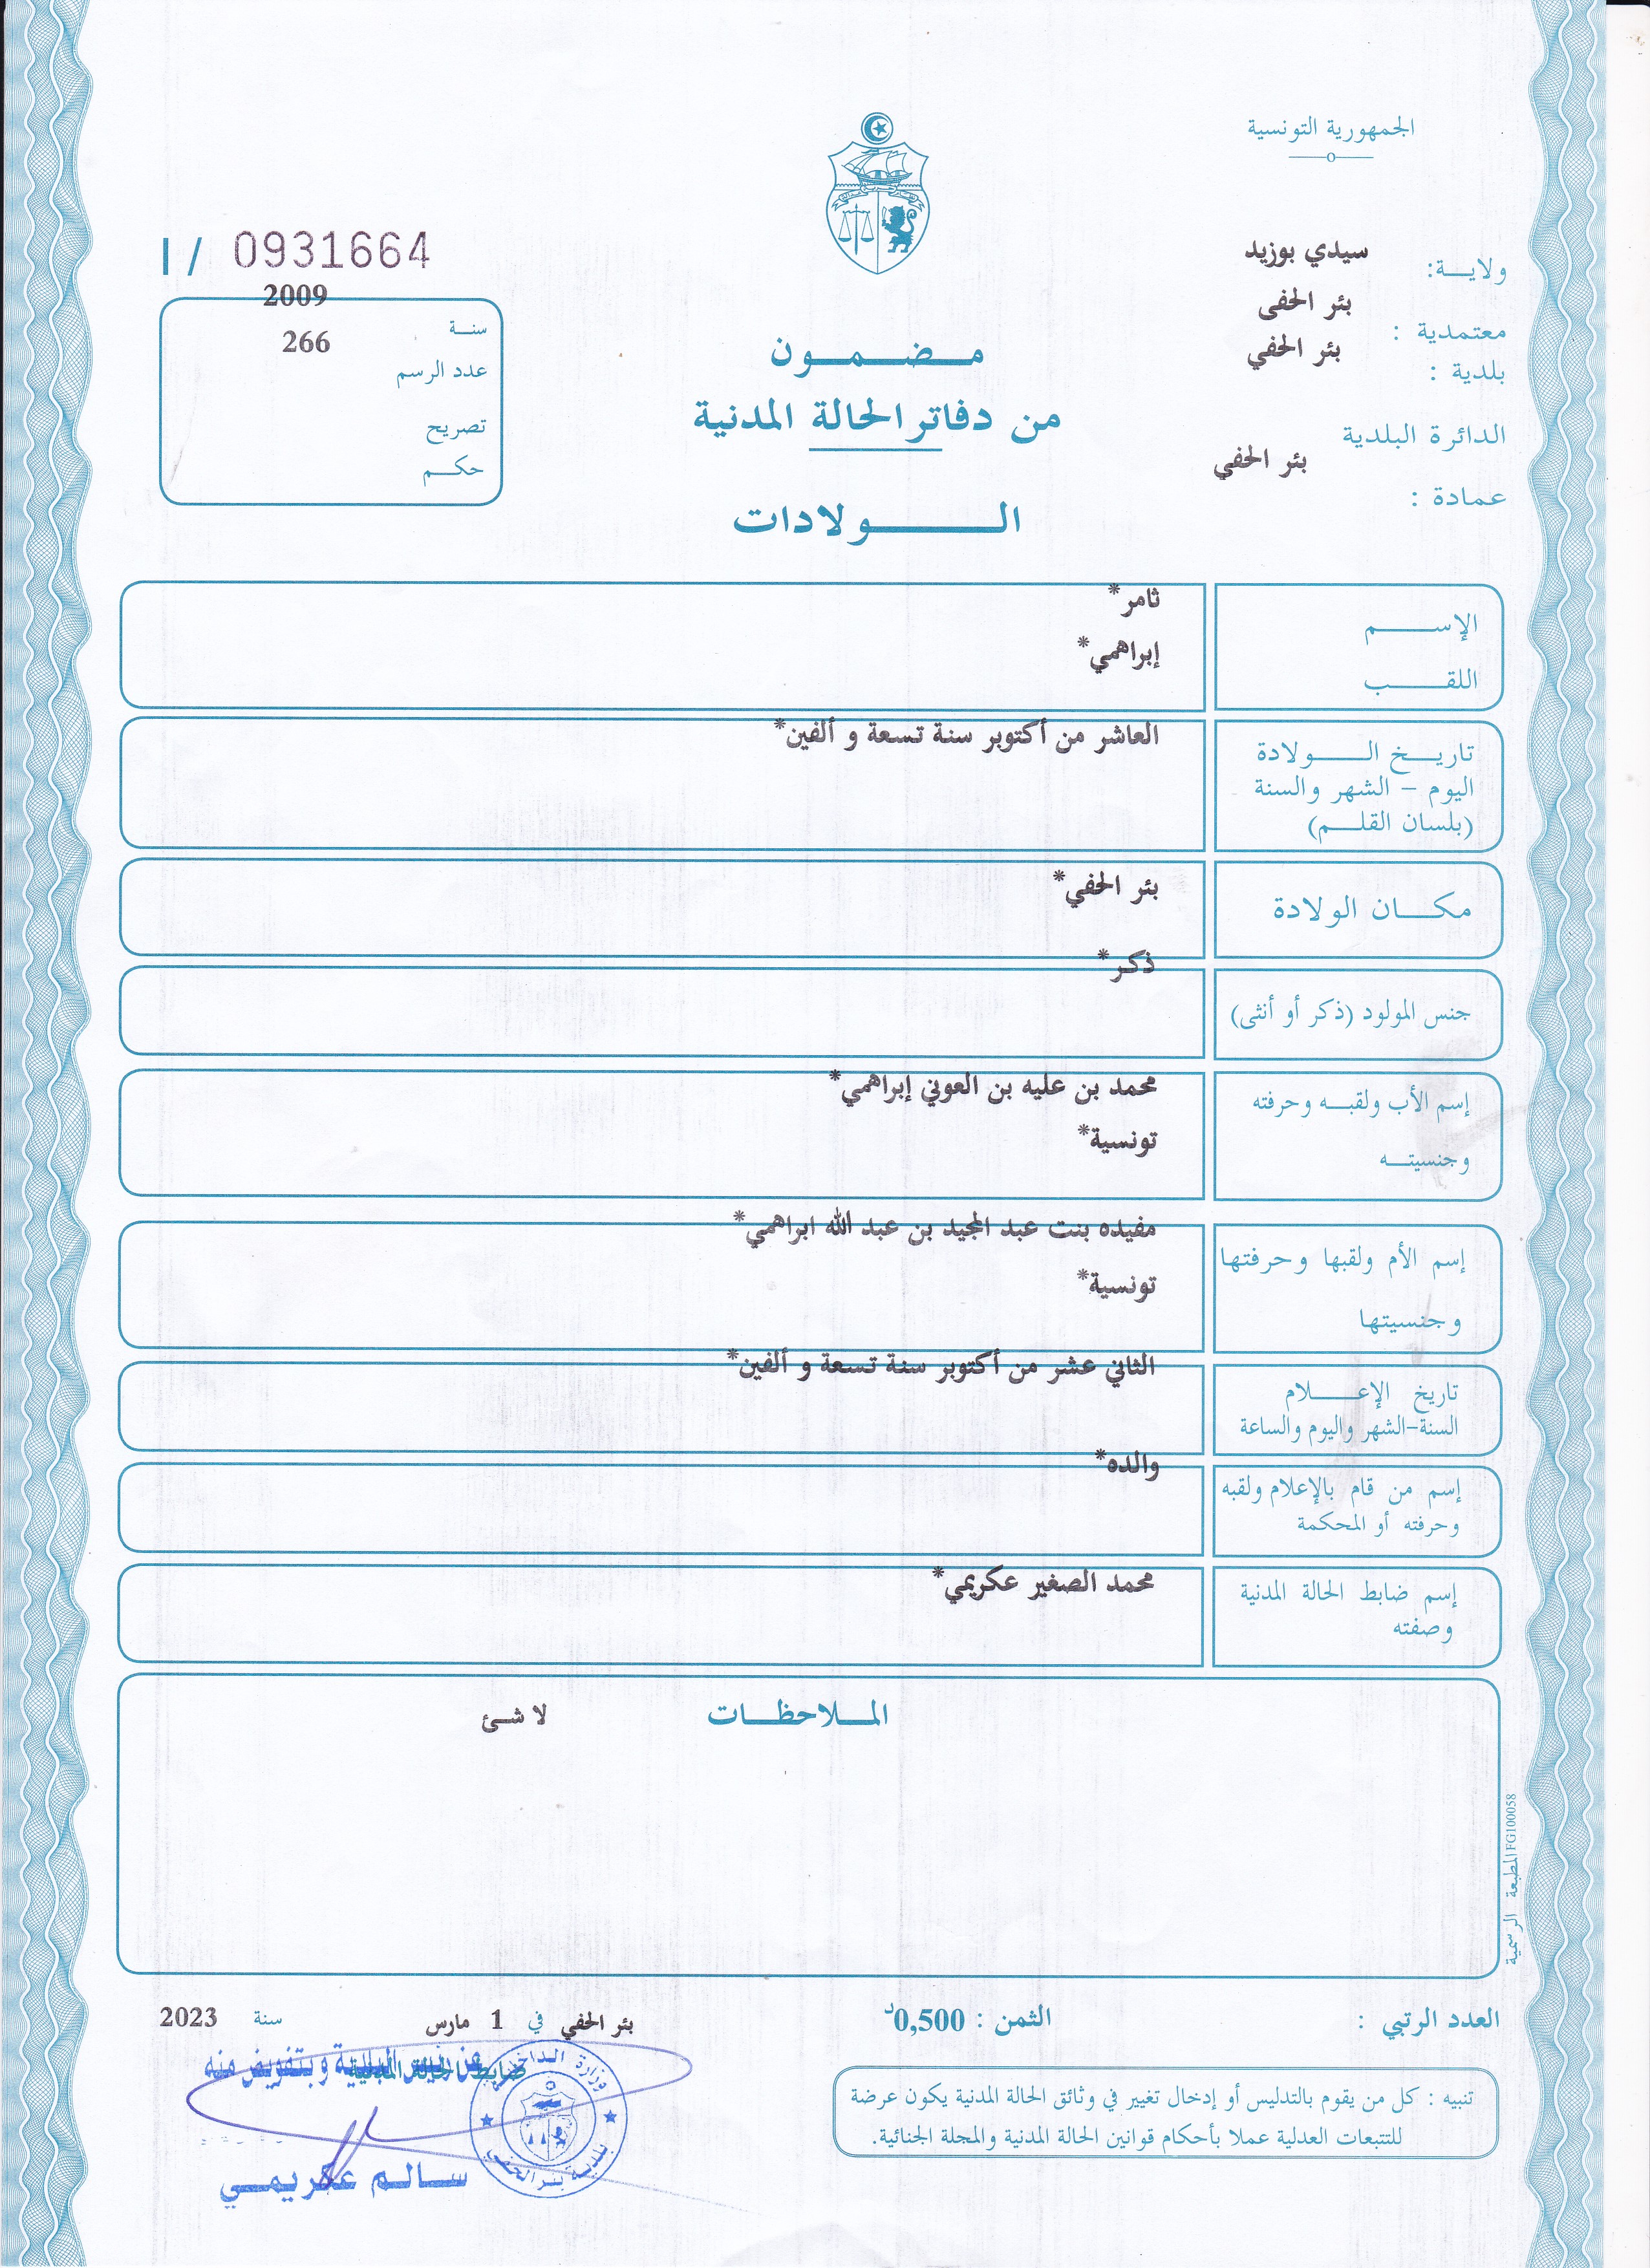 الجمهورية التونسية
ولايـــة: سيدي بوزيد
معتمدية : بئر الحفى
بلدية : بئر الحفي
الدائرة البلدية
بئر الحفي
عمادة :
I / 0931664
2009
سنــة
266
عدد الرسم
تصريح
حكــم
مـــضـــمـــون
من دفاتر الحالة المدنية
الـــــولادات
الإســـــم ثامر*
اللقـــــب إبراهمي*
تاريـــخ الـــــولادة العاشر من أكتوبر سنة تسعة و ألفين*
اليوم – الشهر والسنة
(بلسان القلـــم)
مكـــان الولادة بئر الحفي*
جنس المولود (ذكر أو أنثى) ذكر*
إسم الأب ولقبــه وحرفته محمد بن عليه بن العوني إبراهمي*
وجنسيتــه تونسية*
إسم الأم ولقبها وحرفتها مفيده بنت عبد المجيد بن عبد الله ابراهمي*
وجنسيتها تونسية*
تاريخ الإعــــلام الثاني عشر من أكتوبر سنة تسعة و ألفين*
السنة-الشهر واليوم والساعة
إسم من قام بالإعلام ولقبه والده*
وحرفته أو المحكمة
إسم ضابط الحالة المدنية محمد الصغير عكريمي*
وصفته
المــلاحظــات لا شئ
المطبعة الرسمية FG100058
العدد الرتبي : الثمن : 0,500د
بئر الحفي في 1 مارس سنة 2023
ضابط الحالة المدنية
عن رئيس البلدية وبتفويض منه
وزارة الداخلية
بلدية بئر الحفي
سـالـم عكريمـي
تنبيه : كل من يقوم بالتدليس أو إدخال تغيير في وثائق الحالة المدنية يكون عرضة
للتتبعات العدلية عملا بأحكام قوانين الحالة المدنية والمجلة الجنائية.